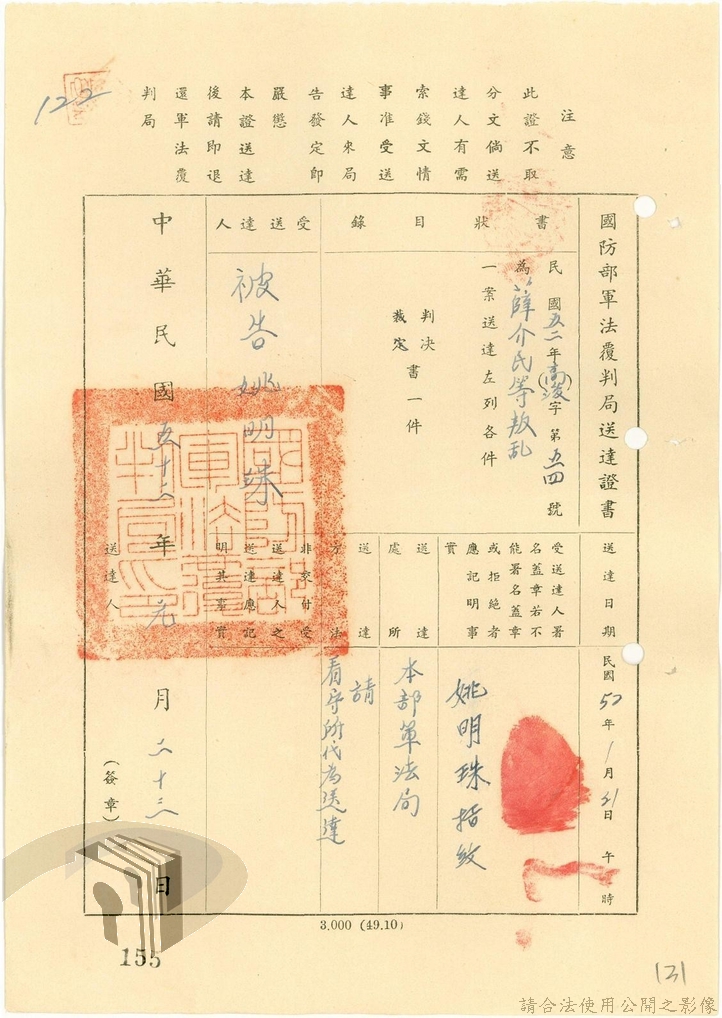 注意
此證不取
分文倘送
達人有需
索錢文情
事准受送
達人來局
告發定即
嚴懲
本證送達
後請即退
還軍法覆
判局
122
國防部軍法覆判局送達證書
送達日期
民國52年1月21日午時
書狀目錄
民國五二年(高復)字第五四號
為薛介民等叛乱
一案送達左列各件
判決
裁定
書一件
受送達人署
名蓋章若不
能署名蓋章
或拒絕者
應記明事
實
姚明珠指紋
送達處所
本部軍法局
受送達人
被告姚明珠
送達方法
請
看守所代為送達
非交付受
送達人之
送達應記
明其事實
中華民國五十二年元月二十三日
送達人
(簽章)
3,000 (49.10)
155
131
請合法使用公開之影像